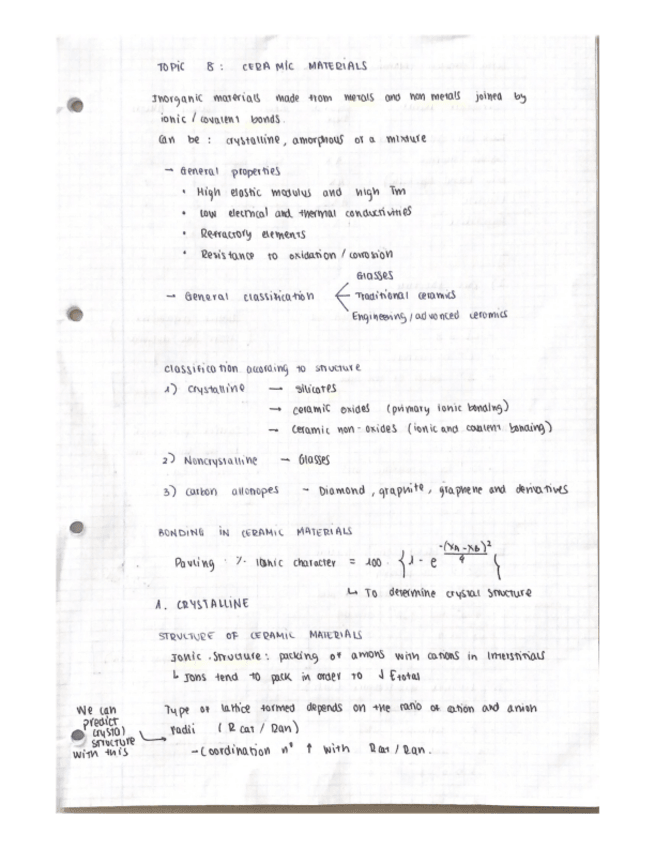 TOPIC 8: CERAMIC MATERIALS
Inorganic materials made from metals and non metals joined by
ionic / covalent bonds.
Can be: crystalline, amorphous or a mixture
→ General properties
• High elastic modulus and high Tm
• Low electrical and thermal conductivities
• Refractory elements
• Resistance to oxidation / corrosion
Glasses
→ General classification < Traditional ceramics
Engineering / advanced ceramics
Classification according to structure
1) Crystalline → silicates
→ ceramic oxides (primary ionic bonding)
→ ceramic non-oxides (ionic and covalent bonding)
2) Noncrystalline → Glasses
3) Carbon allotropes → Diamond, graphite, graphene and derivatives
BONDING IN CERAMIC MATERIALS
Pauling · % Ionic character = 100 · {1 - e^(-(XA - XB)²/4)}
↳ To determine crystal structure
1. CRYSTALLINE
STRUCTURE OF CERAMIC MATERIALS
Ionic structure: packing of anions with cations in interstitials
↳ Ions tend to pack in order to ↓ Etotal
Type of lattice formed depends on the ratio of cation and anion
radii (Rcat / Ran)
We can
predict
crystal
structure
with this
- Coordination nº ↑ with Rcat / Ran.